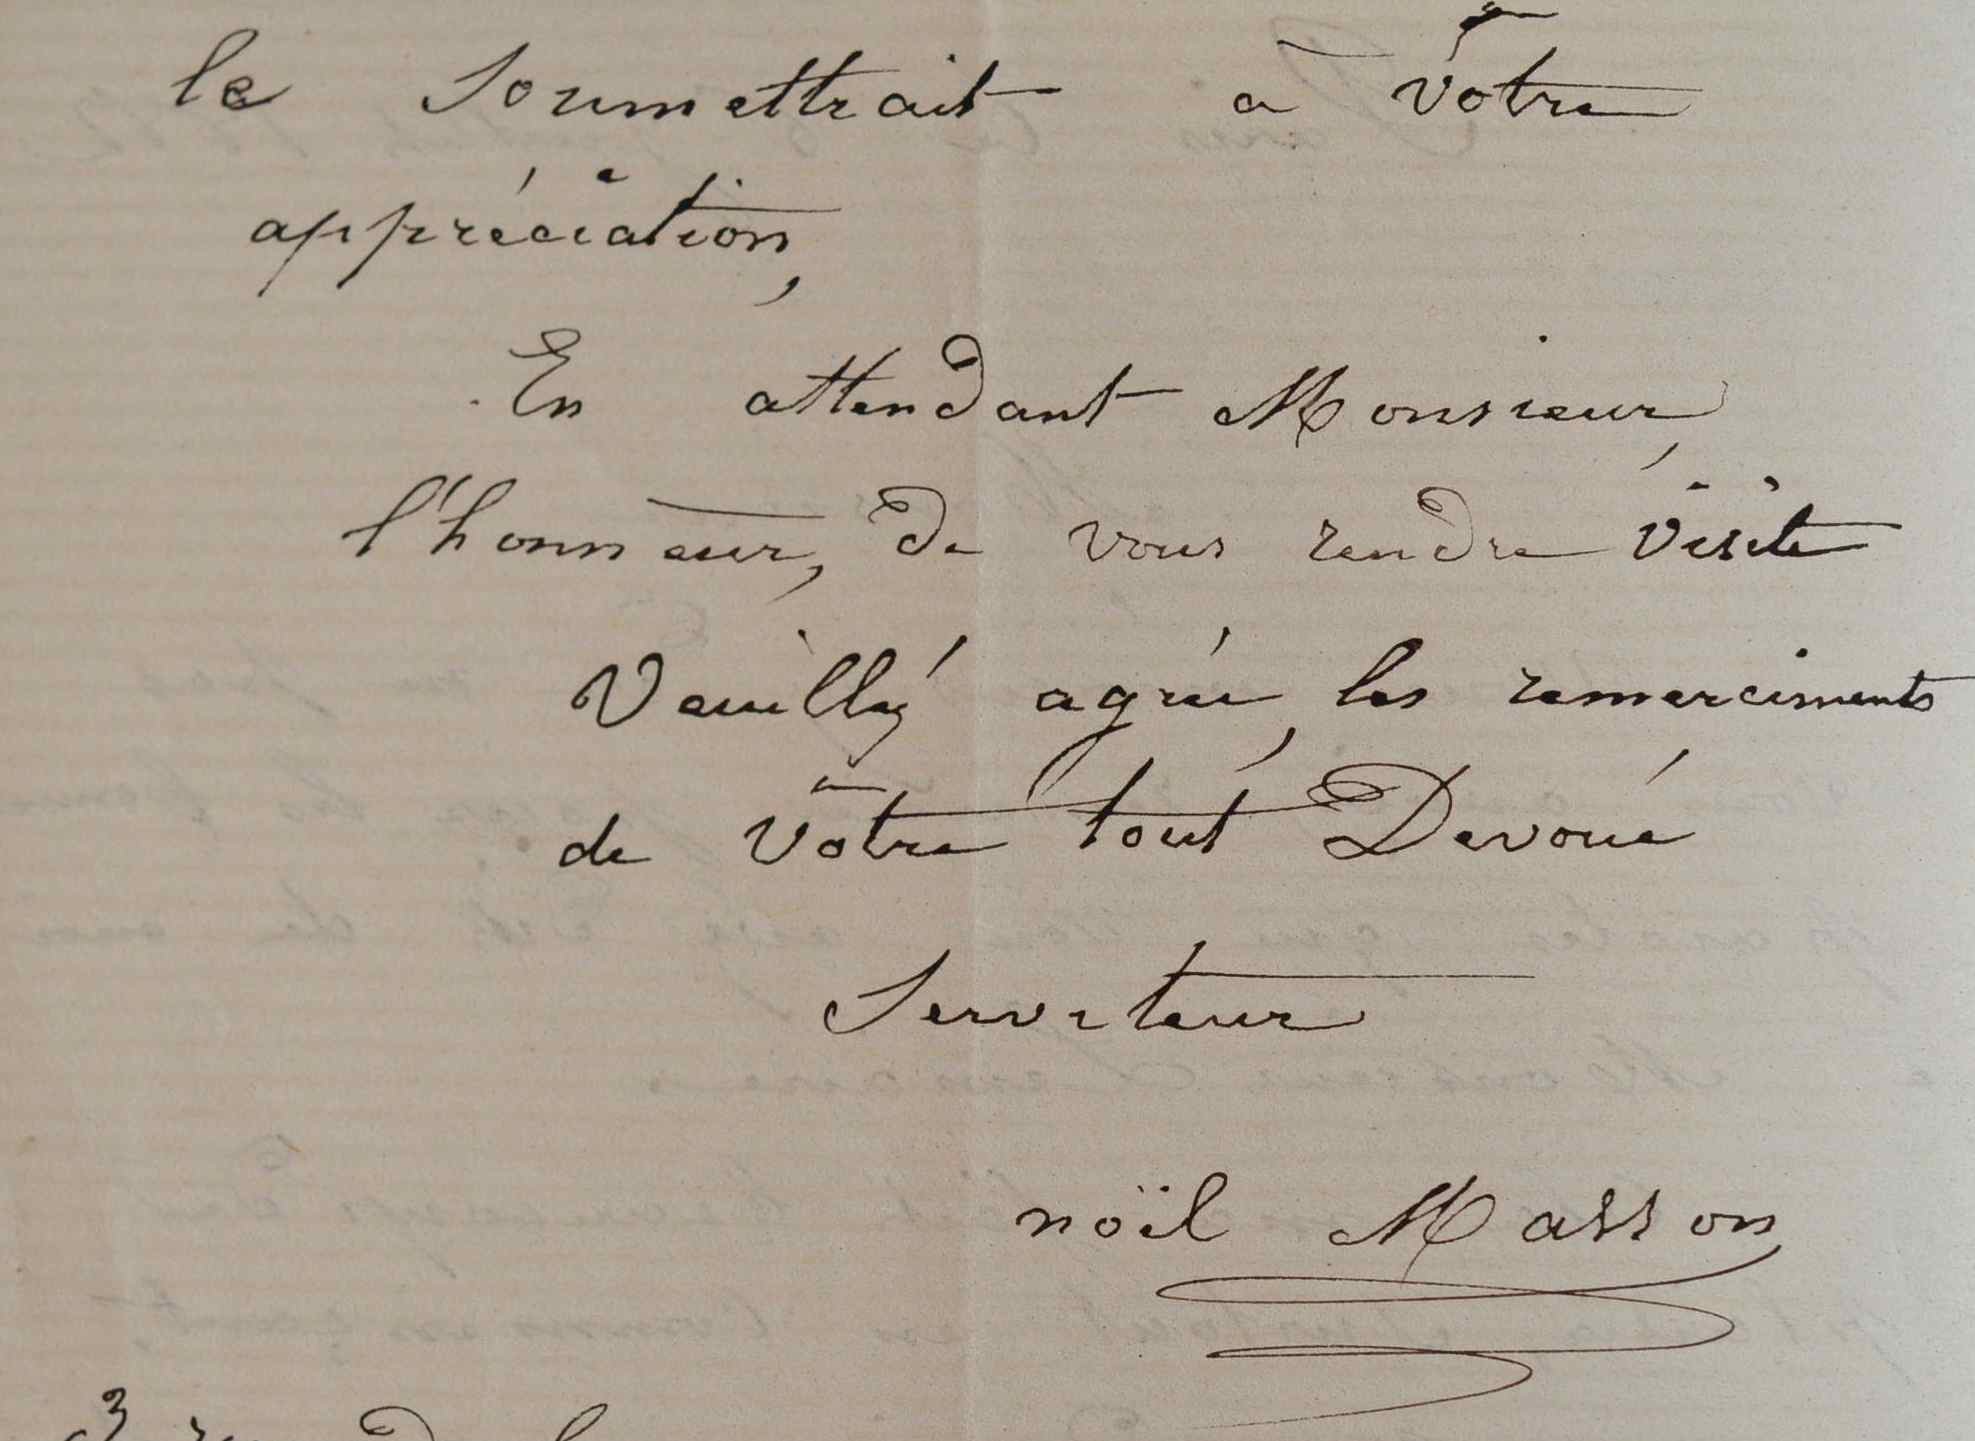 le Soumettrait a votre
appréciation,
En attendant Monsieur,
l'honneur, de vous rendre visite
Veuilléz agrée, les remerciments
de votre tout Devoué
Serviteur
noïl Masson